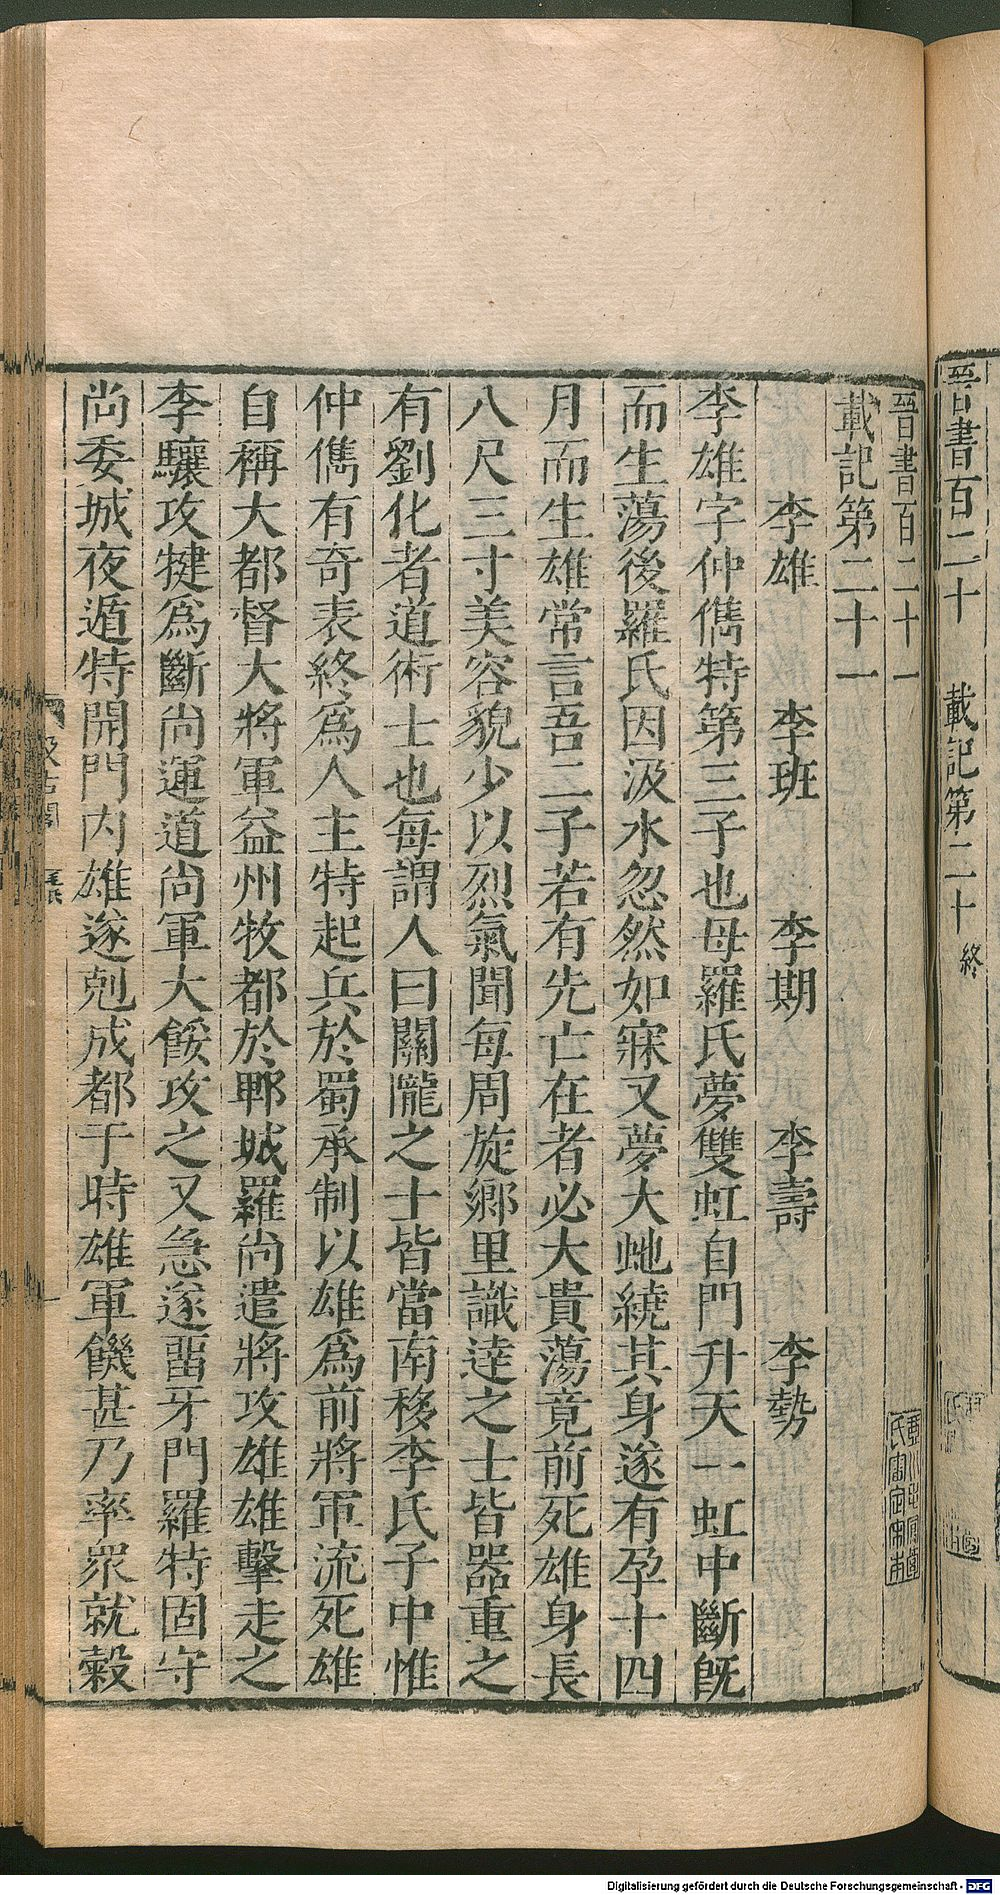 晉書百二十 載記第二十 終
晉書百二十一
載記第二十一
李雄 李班 李期 李壽 李勢
李雄字仲儁特第三子也母羅氏夢雙虹自門升天一虹中斷旣
而生蕩後羅氏因汲水忽然如寐又夢大虵繞其身遂有孕十四
月而生雄常言吾二子若有先亡在者必大貴蕩竟前死雄身長
八尺三寸美容貌少以烈氣聞每周旋鄉里識達之士皆器重之
有劉化者道術士也每謂人曰關隴之士皆當南移李氏子中惟
仲儁有奇表終爲人主特起兵於蜀承制以雄爲前將軍流死雄
自稱大都督大將軍益州牧都於郫城羅尚遣將攻雄雄擊走之
李驤攻犍爲斷尚運道尚軍大餒攻之又急遂畱牙門羅特固守
尚委城夜遁特開門內雄遂剋成都于時雄軍饑甚乃率衆就穀
Digitalisierung gefördert durch die Deutsche Forschungsgemeinschaft - DFG